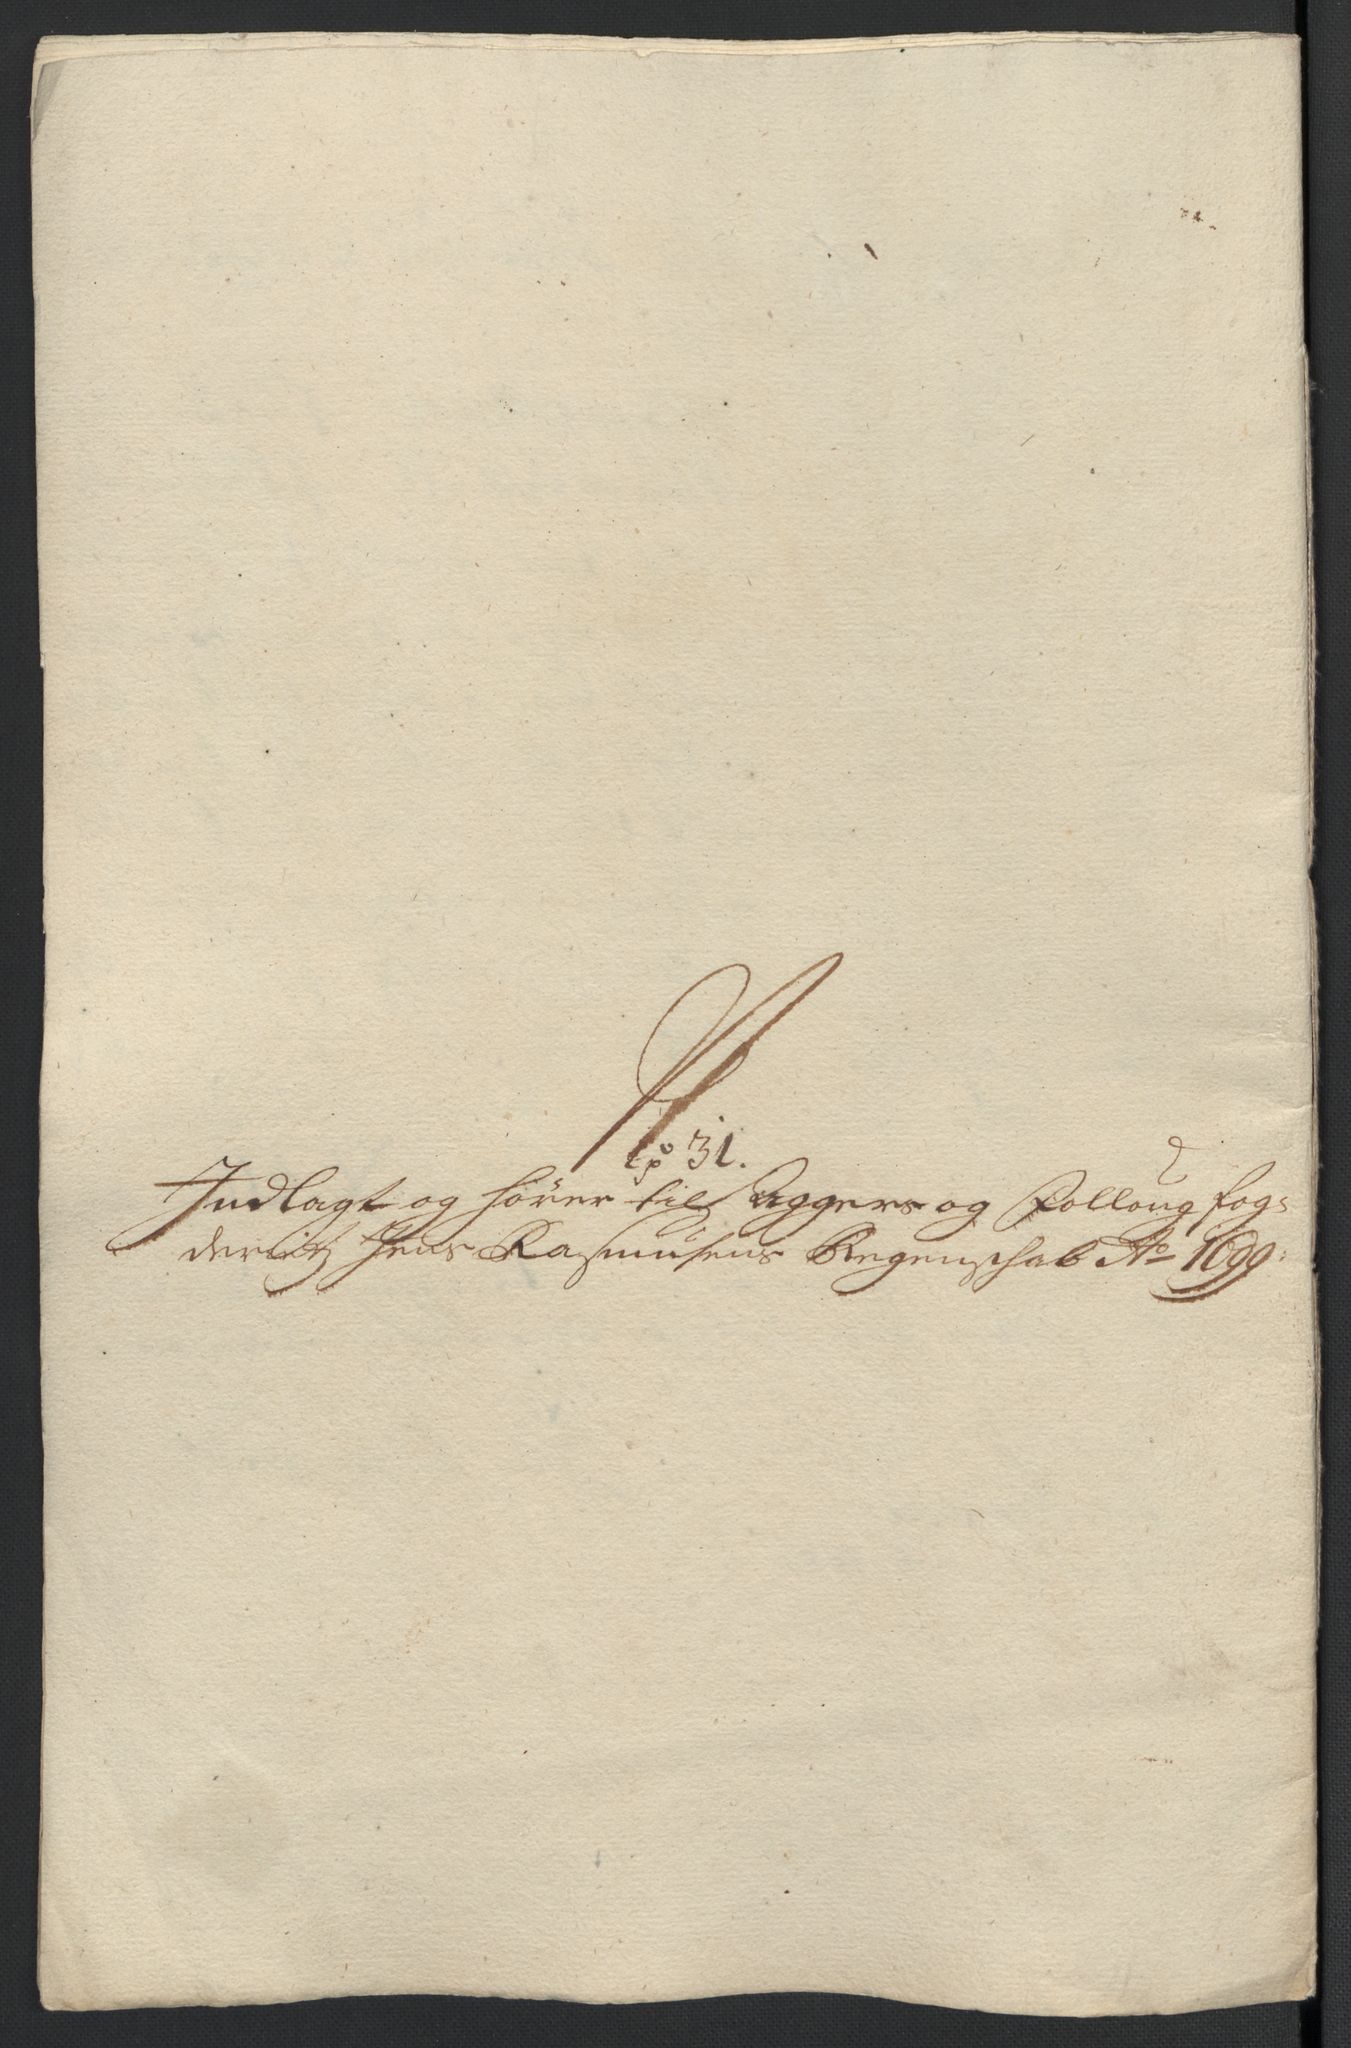 No 31.
Indlagt og hörer til Aggers og Folloug fog-
derietz Jens Rasmusens Regenschab Ao 1699: